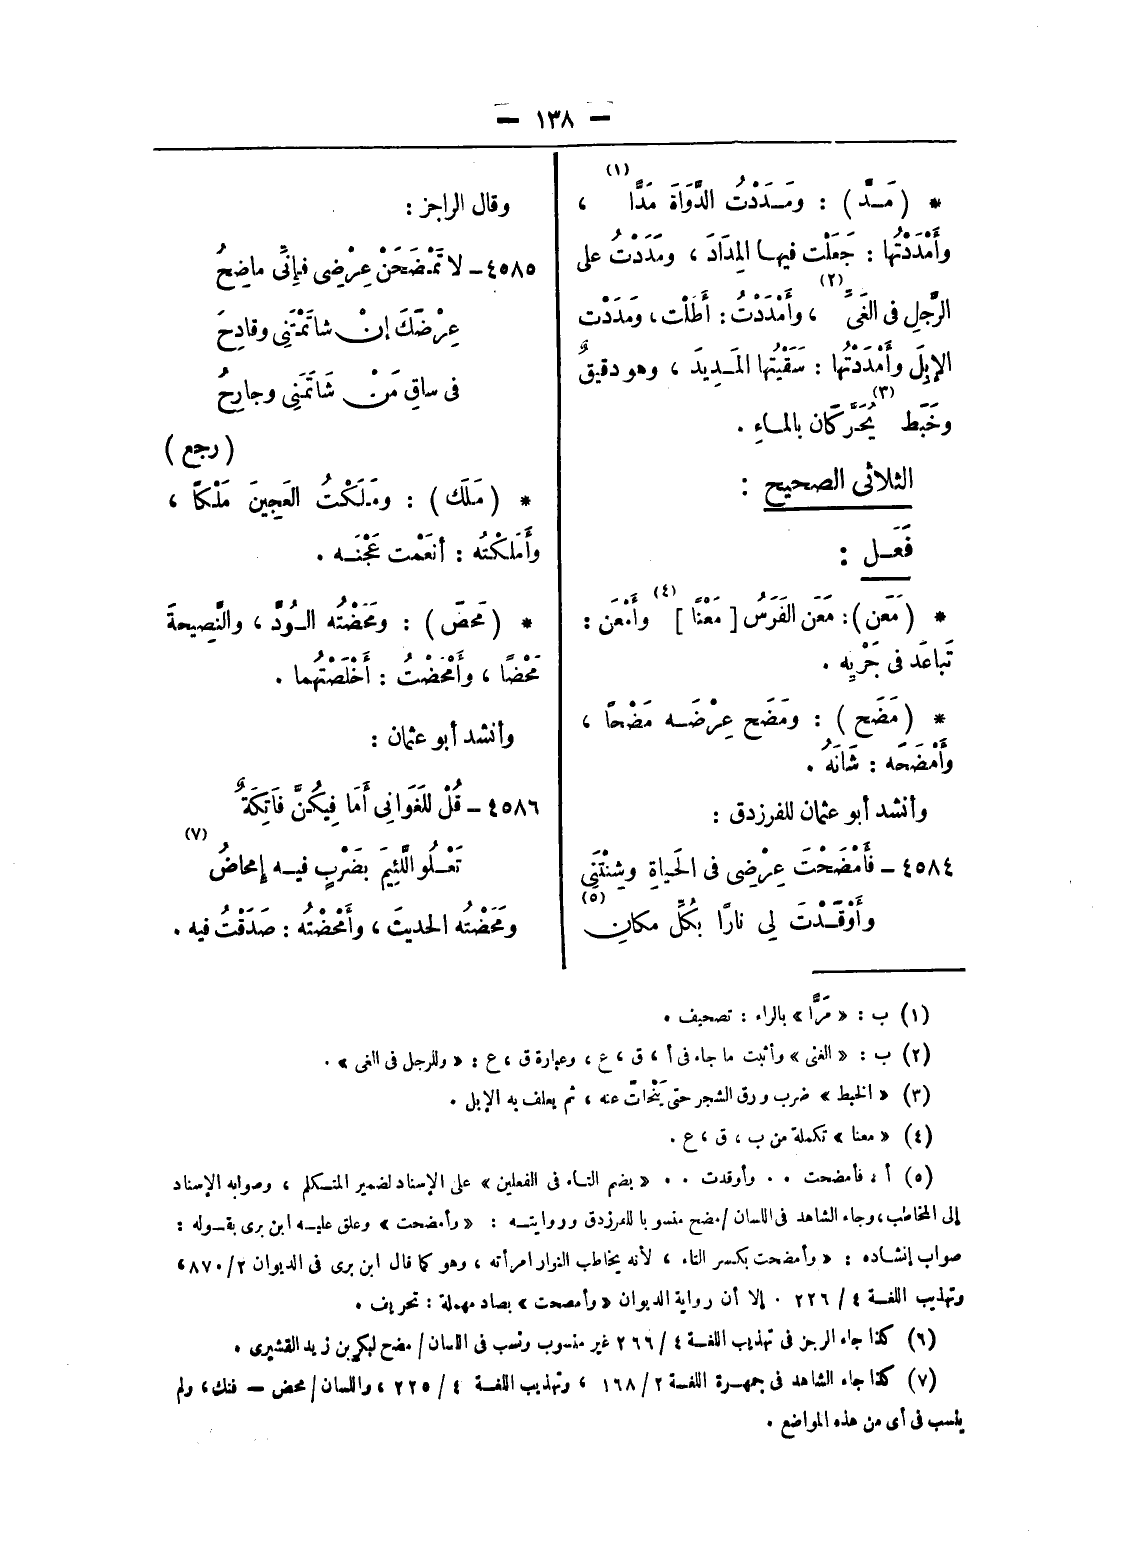 — ١٣٨ —
* (مَـدَّ) : ومَـدَدْتُ الدَّوَاةَ مَدًّا (١) ،
وأَمْدَدْتُها : جَعَلْت فيهـا المِدَادَ ، ومَدَدْتُ على
الرَّجلِ فى الغَىِّ (٢) ، وأَمْدَدْتُ : أَطَلْت ، ومَدَدْت
الإبِلَ وأَمْدَدْتُها : سَقَيْتُها المَـدِيدَ ، وهو دقيقٌ
وخَبَط (٣) يُحَرَّكَان بالمـاءِ .
الثلاثى الصحيح :
فَعَـل :
* (مَعَن) : مَعَن الفَرَسُ [ مَعْنًا ] (٤) وأَمْعَن :
تَباعَد فى جَرْيِه .
* (مَضَح) : ومَضَح عِرْضَـه مَضْحًا ،
وأَمْضَحَه : شَانَهُ .
وأنشد أبو عثمان للفرزدق :
٤٥٨٤ – فأَمْضَحْتَ عِرْضِى فى الحَياةِ وشِنْتَنِى
وأَوْقَـدْتَ لِي نارًا بكُلِّ مكانِ (٥)
وقال الراجز :
٤٥٨٥ – لا تَمْضَحَنْ عِرْضِى فإنِّى ماضِحُ
عِرْضَكَ إنْ شاتَمْتَنِى وقادِحُ
فى ساقِ مَنْ شَاتَمَنِى وجارِحُ
(رجع)
* (مَلَك) : ومَلَكْتُ العَجِينَ مَلْكًا ،
وأَمْلَكْتُه : أنعَمْت عَجْنَـه .
* (مَحَضَ) : ومَحَضْتُه الـوُدَّ ، والنَّصِيحةَ
مَحْضًا ، وأَمْحَضْتُ : أَخْلَصْتُهما .
وأنشد أبو عثمان :
٤٥٨٦ – قُلْ للغَوَانِى أَمَا فِيكُنَّ فَاتِكَةٌ
تَعْـلُو اللَّئِيمَ بضَرْبٍ فيـه إمحاضُ (٧)
ومَحَضْتُه الحديثَ ، وأَمْحَضْتُه : صَدَقْتُ فيه .
(١) ب : « مَرًّا » بالراء : تصحيف .
(٢) ب : « الغنى » وأثبت ما جاء فى أ ، ق ، ع ، وعبارة ق ، ع : « وللرجل فى الغى » .
(٣) « الخبط » ضرب ورق الشجر حتى يَنْحاتَّ عنه ، ثم يعلف به الإبل .
(٤) « معنا » تكملة من ب ، ق ، ع .
(٥) أ ، فأمضحت . . وأوقدت . . « بضم التـاء فى الفعلين » على الإسناد لضمير المتـكلم ، وصوابه الإسناد
إلى المخاطب، وجاء الشاهد فى اللسان / مضح منسوبا للفرزدق وروايتـه : « وأمضحت » وعلق عليـه ابن برى بقـوله :
صواب إنشاده : « وأمضحت بكسر التاء ، لأنه يخاطب النوار امرأته ، وهو كما قال ابن برى فى الديوان ٢/ ٨٧٠ ،
وتهذيب اللغـة ٤ / ٢٢٦ . إلا أن رواية الديوان « وأمصحت » بصاد مهملة : تحريف .
(٦) كذا جاء الرجز فى تهذيب اللغـة ٤ / ٢٦٦ غير منسوب ونسب فى اللسان / مضح لبكر بن زيد القشيرى .
(٧) كذا جاء الشاهد فى جمهـرة اللغـة ٢ / ١٦٨ ، وتهذيب اللغـة ٤ / ٢٢٥ ، واللسان / محض – فتك، ولم
ينسب فى أى من هذه المواضع .